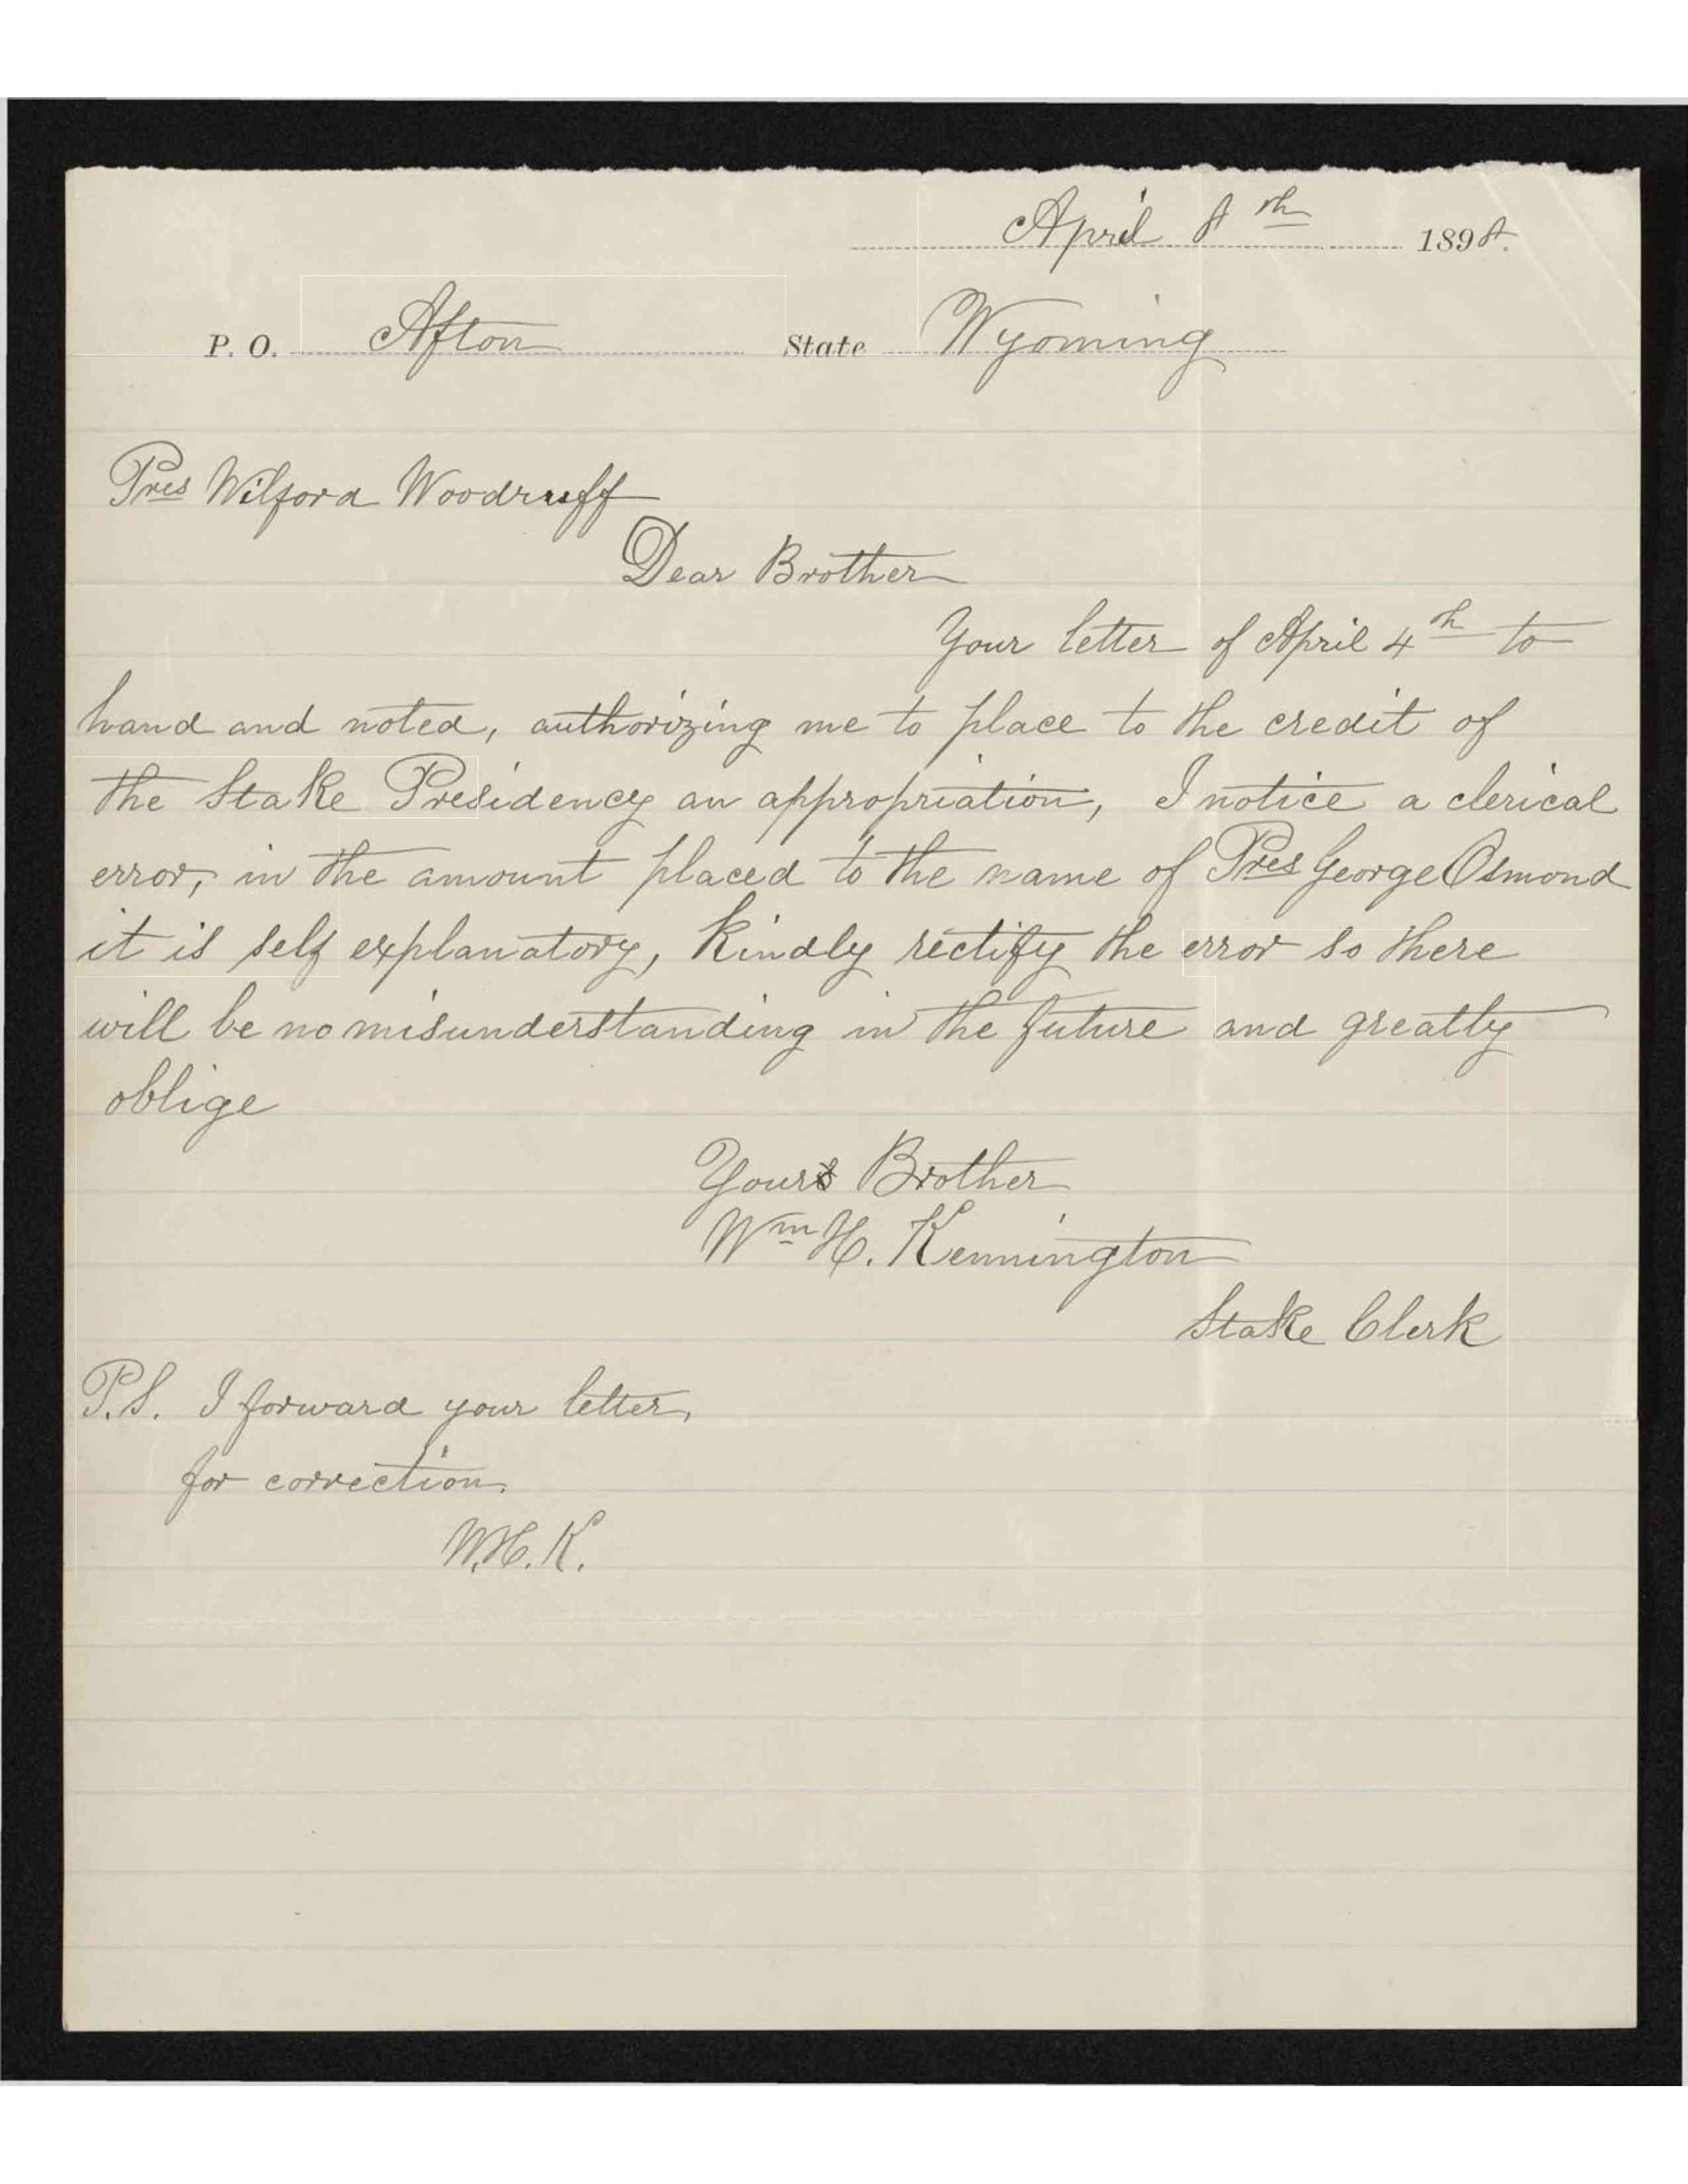 April 8th 1898.
P. O. Afton State Wyoming
Pres Wilford Woodruff
Dear Brother
Your letter of April 4th to
hand and noted, authorizing me to place to the credit of
the Stake Presidency an appropriation, I notice a clerical
error, in the amount placed to the name of Pres George Osmond
it is self explanatory, Kindly rectify the error so there
will be no misunderstanding in the future and greatly
oblige
Yours Brother
Wm H. Kennington
Stake Clerk
P.S. I forward your letter,
for correction.
W.H.K.